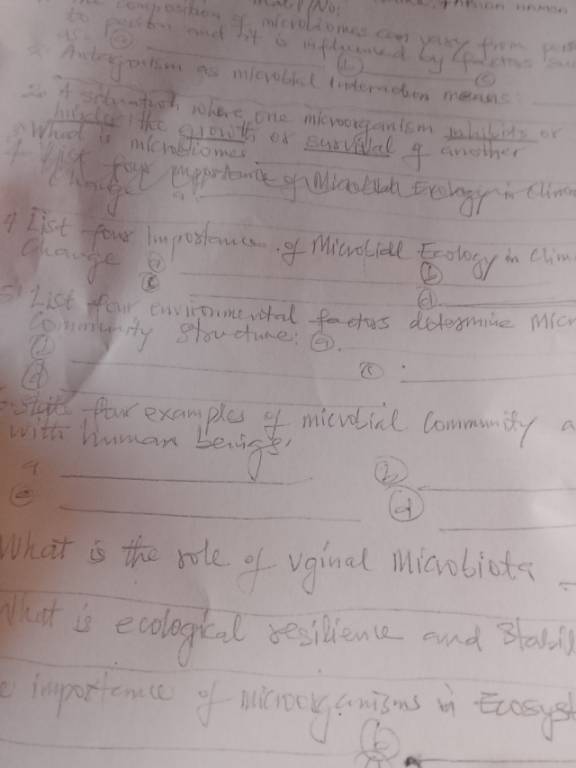 composition of microbiomes can vary from
to person and it is influenced by factors such
as: (a) (b) (c)
2. Antagonism as microbial Interaction means:
2. A situation where one microorganism inhibits or
the growth or survival of another
3 What is microbiomes
4 List four importance of Microbial Ecology in Clim
Change a.
4 List four Importance of Microbiall Ecology in Clim
Change (a) (b)
(c) (d)
5. List four environmental factors determine Micr
Community Structure: (a).
(c) :
(d)
four examples of microbial Community a
with human beings,
a (b)
(c) (d)
What is the role of vginal Microbiota
What is ecological resilience and Stabil
e importance of microorganisms in Ecosyst
(b)